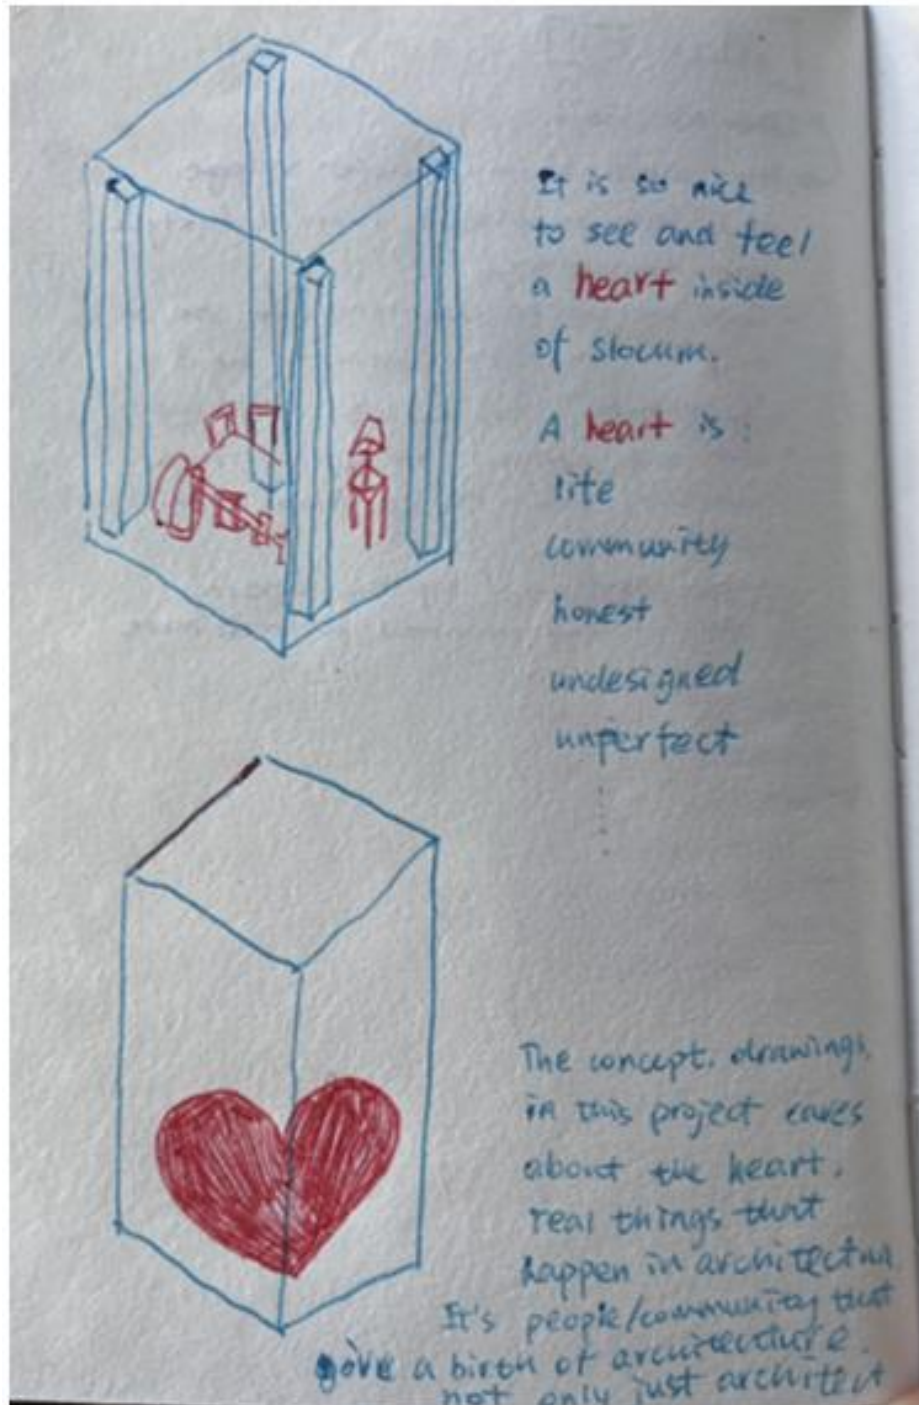 It is so nice
to see and feel
a heart inside
of Slocum.
A heart is:
life
community
honest
undesigned
unperfect
The concept. drawings.
in this project cares
about the heart.
real things that
happen in architectural
It's people/community that
give a birth of architecture.
not only just architect